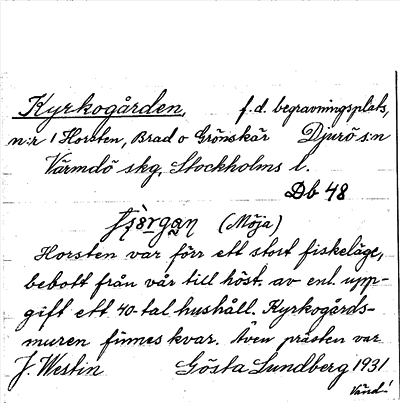 Kyrkogården, f.d. begravningsplats,
n:r 1 Horsten, Brad o Grönskär Djurö s:n
Värmdö skg, Stockholms l.
Db 48
(Möja)
Horsten var förr ett stort fiskeläge,
bebott från vår till höst. av enl. upp-
gift ett 40-tal hushåll. Kyrkogårds-
muren finnes kvar. Även prästen var
J. Westin Gösta Lundberg 1931
Vänd!